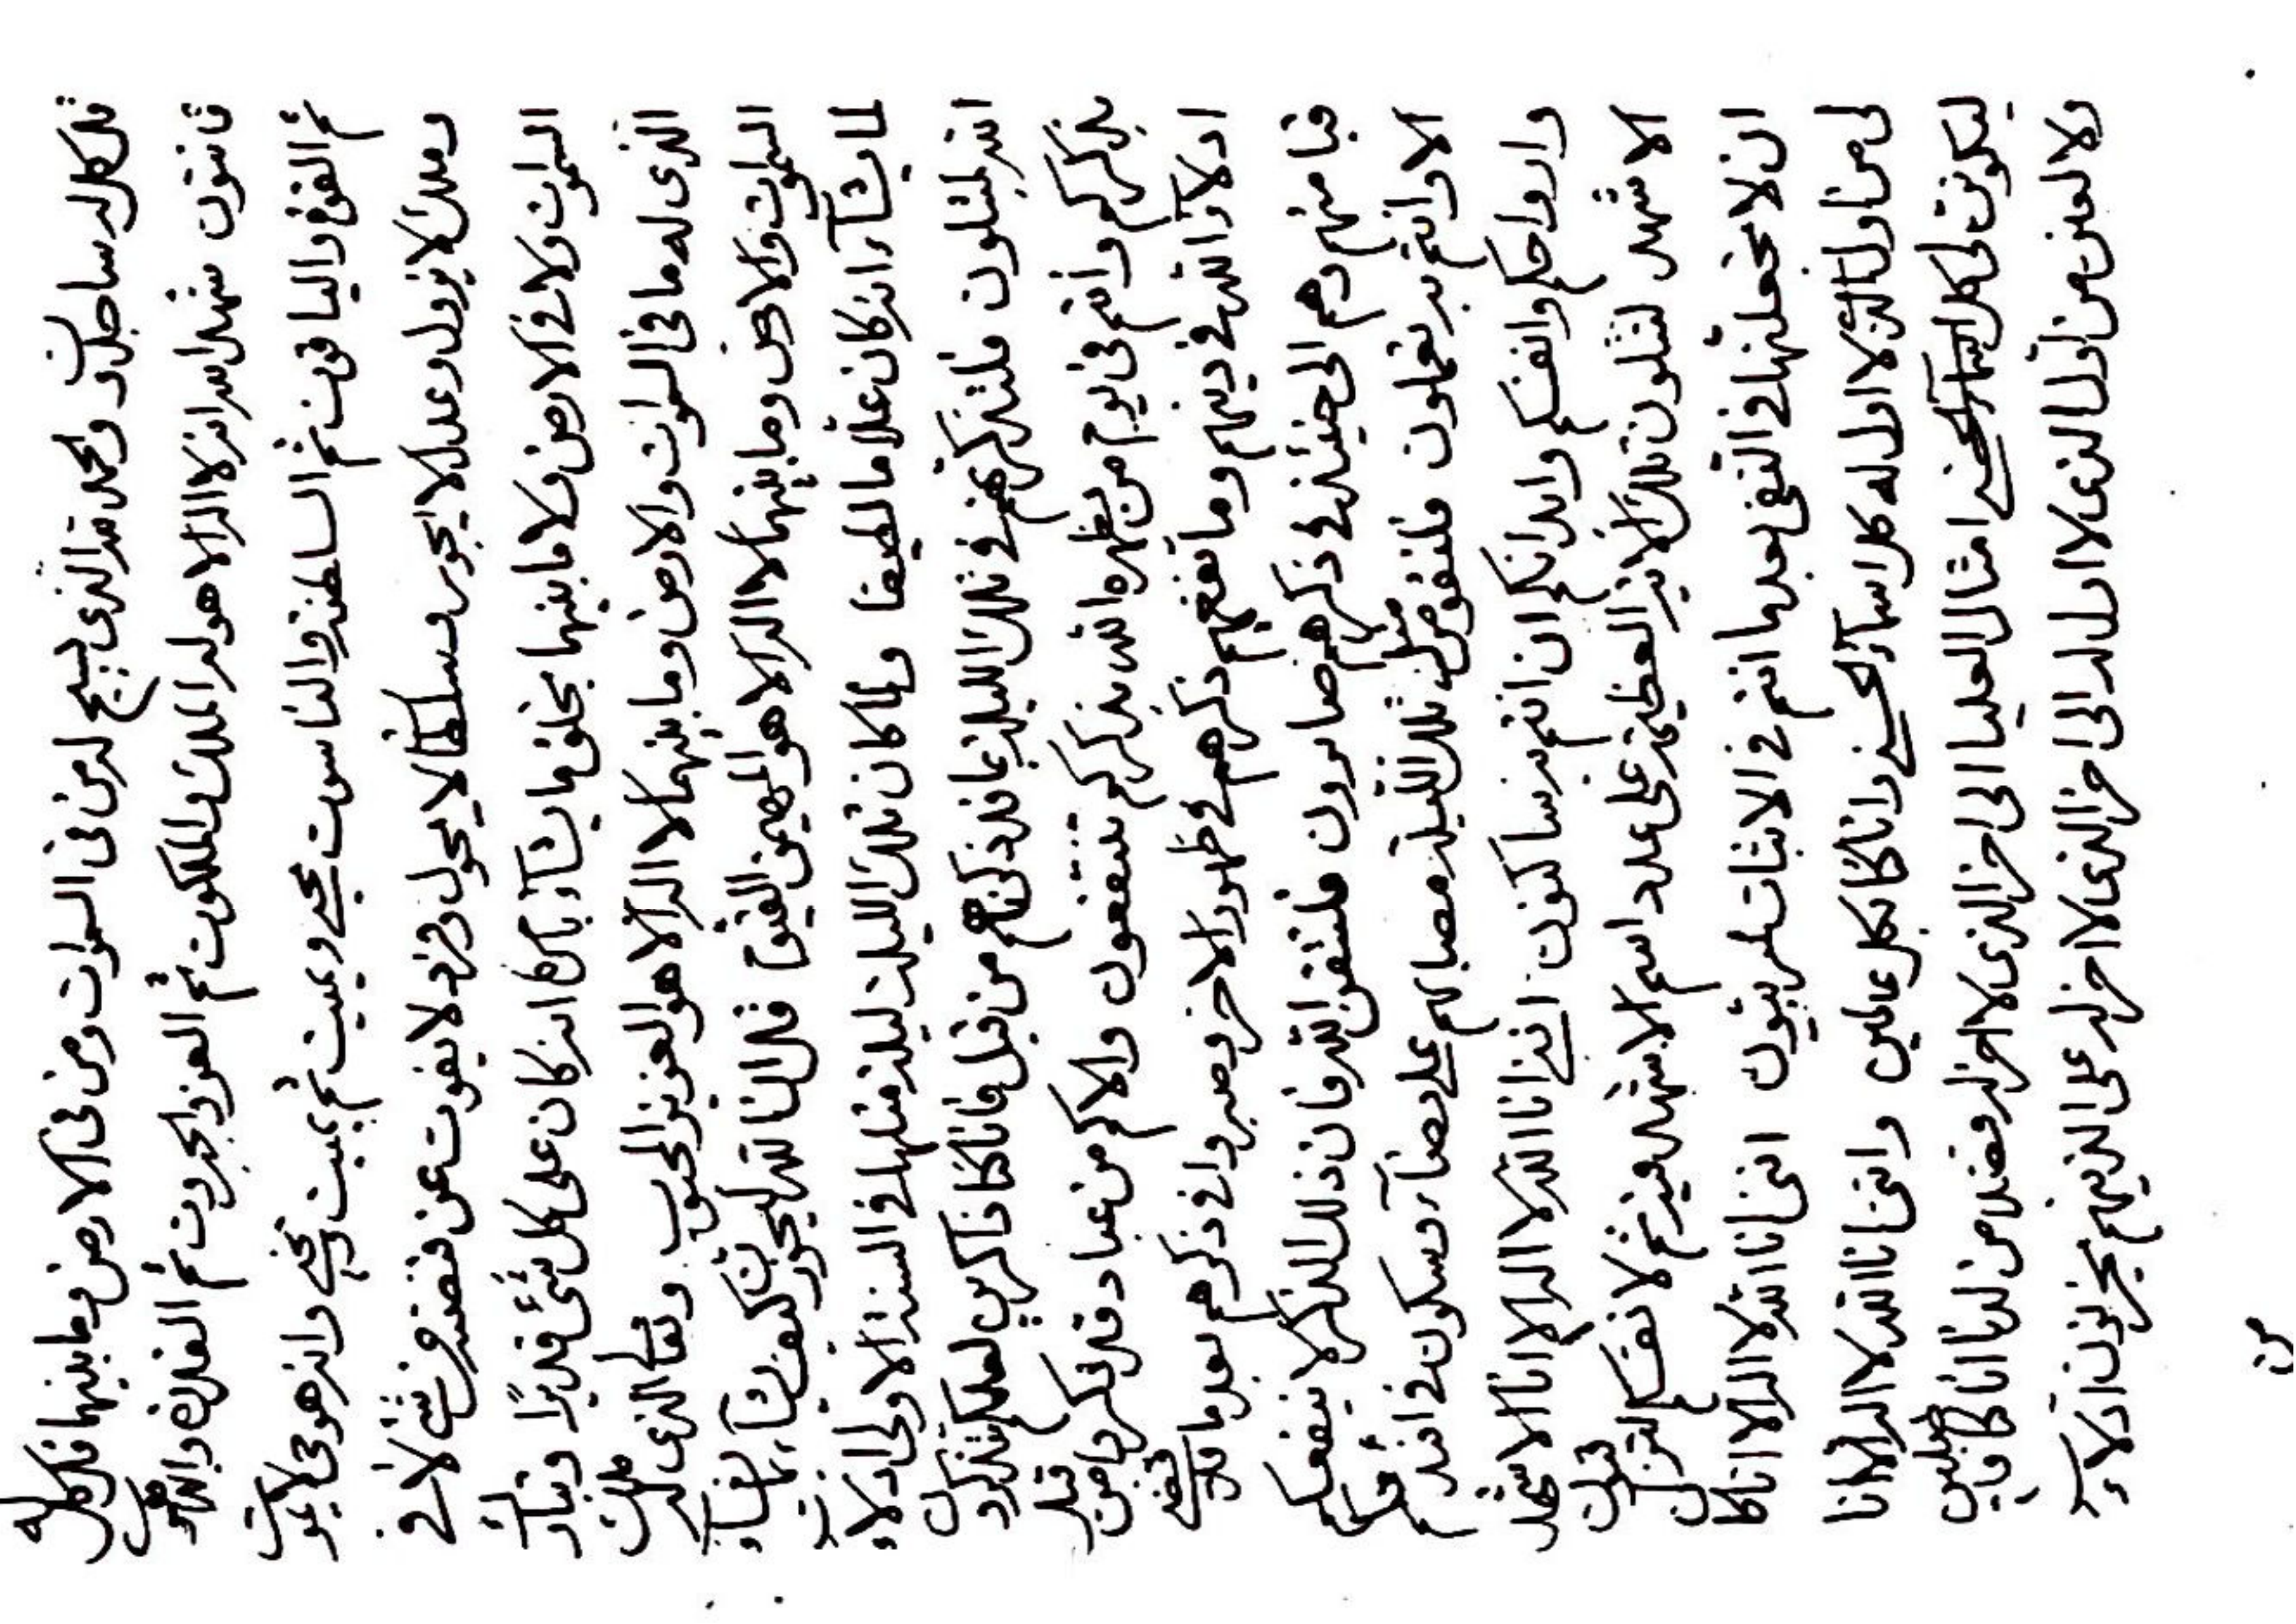 قل كل له ساجدون والحمد لله الذي يسبح له من في السموات ومن في الارض وما بينهما قل كل له
قانتون شهد الله انه لا اله الا هو له الملك والملكوت ثم العز والجبروت ثم القدرة واللاهوت
ثم القوة والياقوت ثم السلطنة والناسوت يحيي ويميت ثم يميت ويحيي وانه هو حي لا يموت
وملك لا يزول وعدل لا يجور وسلطان لا يحول وفرد لا يفوت عن قبضته من شئ لا في
السموات ولا في الارض ولا ما بينهما يخلق ما يشآء بامره انه كان على كل شئ قديرا وتبارك
الذي له ما في السموات والارض وما بينهما لا اله الا هو العزيز المحبوب وتعالى الذي له ملكوت
السموات والارض وما بينهما لا اله الا هو المهيمن القيوم قل انا الله ليجزين كيف يشآء بما يشآء
لما يشآء انه كان علاما لطيفا ولما كان تلك الليلة ليلة مثلها في السنة الاولى ادلاء
الله يتلون فلتذكرنهم في تلك الليلة بما قد ذكرناهم من قبل فانا كنا ذاكرين لعلكم تتذكرون
بذكركم وانتم في يوم من يظهره الله بذكركم تنتفعون والا كم من عباد قد ذكروا من قبل
ادلآء الله في دينهم وما نفعهم ذكرهم في ظهور الاخر وصبروا في ذكرهم بعد ما قد
قبا منهم وهم الى حينئذ في ذكرهم صابرون فلتتقن الله فان ذلك الذكر لا ينفعكم
الا وانتم به تعملون فلتقومن تلك الليلة مصابهم على رضآء وسكون في افئدتكم
وارواحكم وانفسكم وابدانكم ان انتم به ساكنون انني انا الله لا اله الا انا الاشهد
الاشهد لتتلون تلك الاية العظيمة على عدد اسم الاشهد ثم لانفسكم لتنزلون
ان لا يجعلنها في النفي بعد ما انتم في الاثبات لمرتبون انني انا الله لا اله الا انا كان
لي من اول الذي لا اول له كل اسمآء الحسنى وانا كنا بكل عالمين وانني انا الله لا اله الا انا
ليكونن لي كل اسمآء الحسنى امثال العليا الى اخر الذي لا اخر له فضلا من لدنا انا كنا فاضلين
ولالعنن من اول الذي لا اول له الى اخر الذي لا اخر له على الذينهم يحزنون ادلآء
من